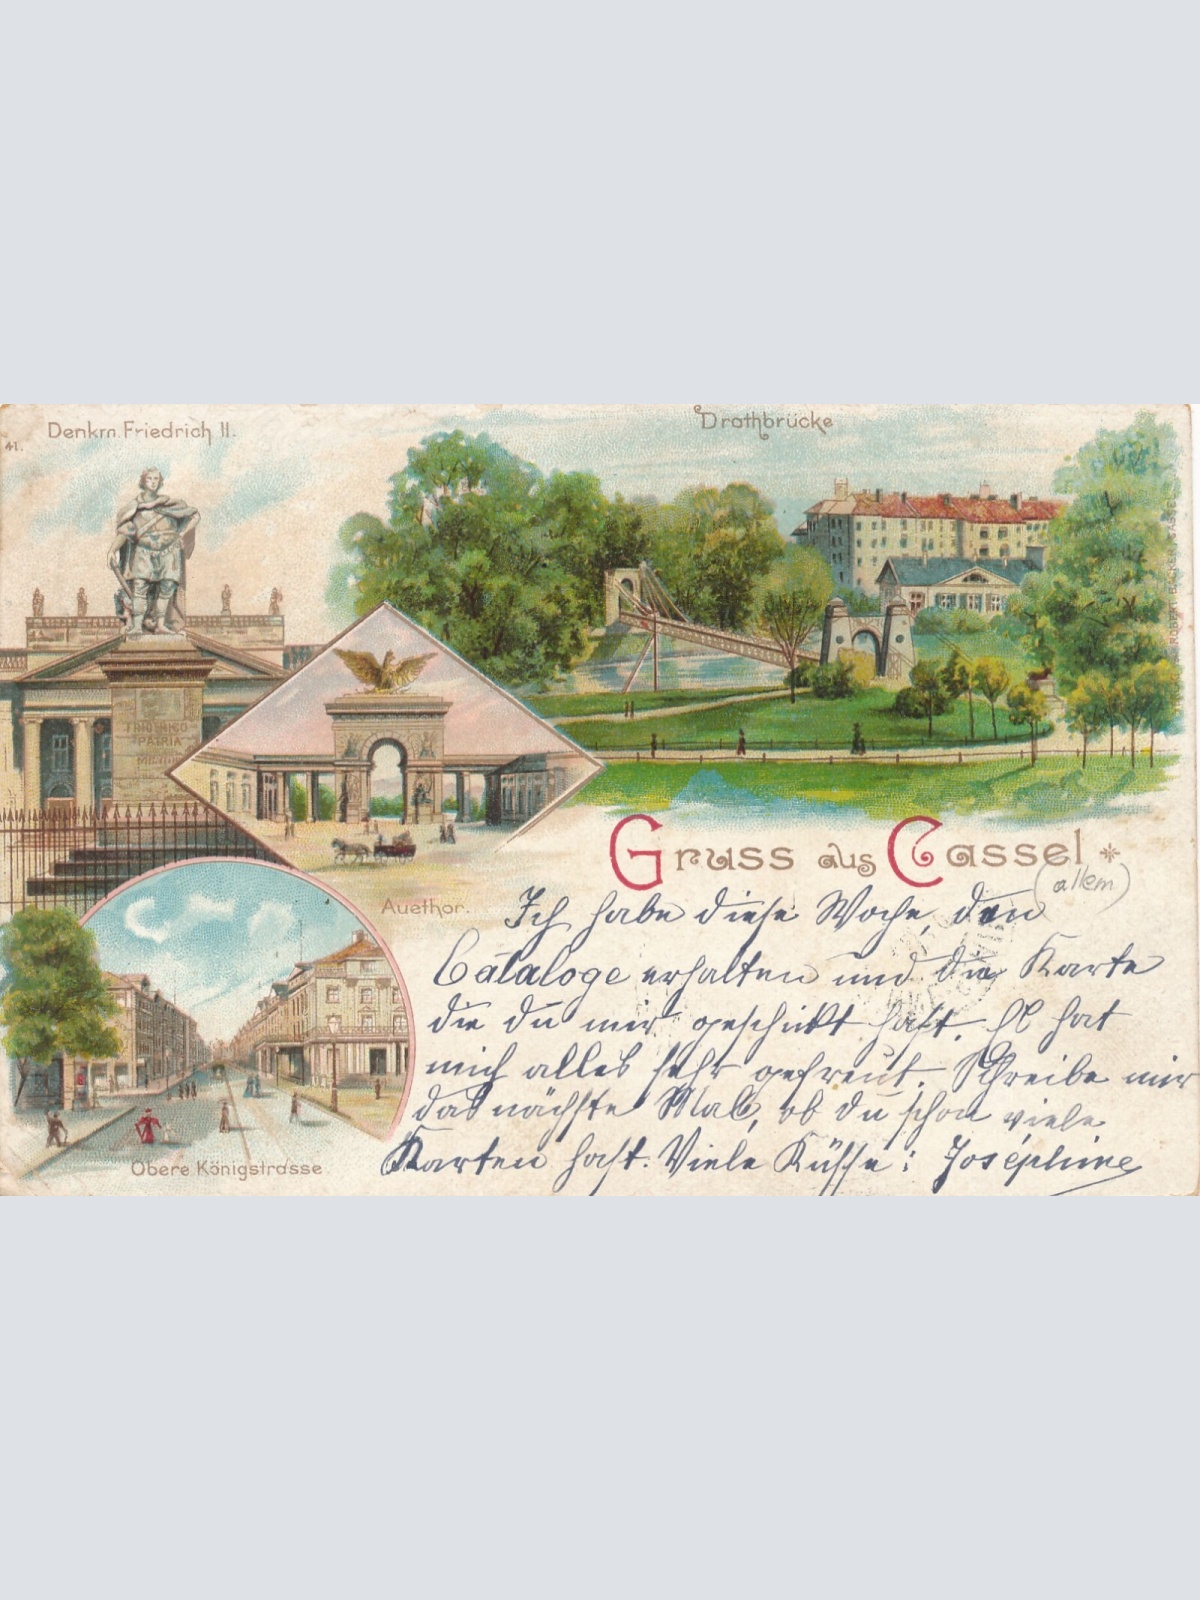 Denkm. Friedrich II.
41.
Drathbrücke
FRIDERICO
PATRIA
Auethor.
Obere Königstrasse
Gruss aus Cassel
(allem)
Ich habe diese Woche, den
Cataloge erhalten und die Karte
die du mir geschickt hast. Es hat
mich alles sehr gefreut. Schreibe mir
das nächste Mal, ob du schon viele
Karten hast. Viele Küsse: Joséphine